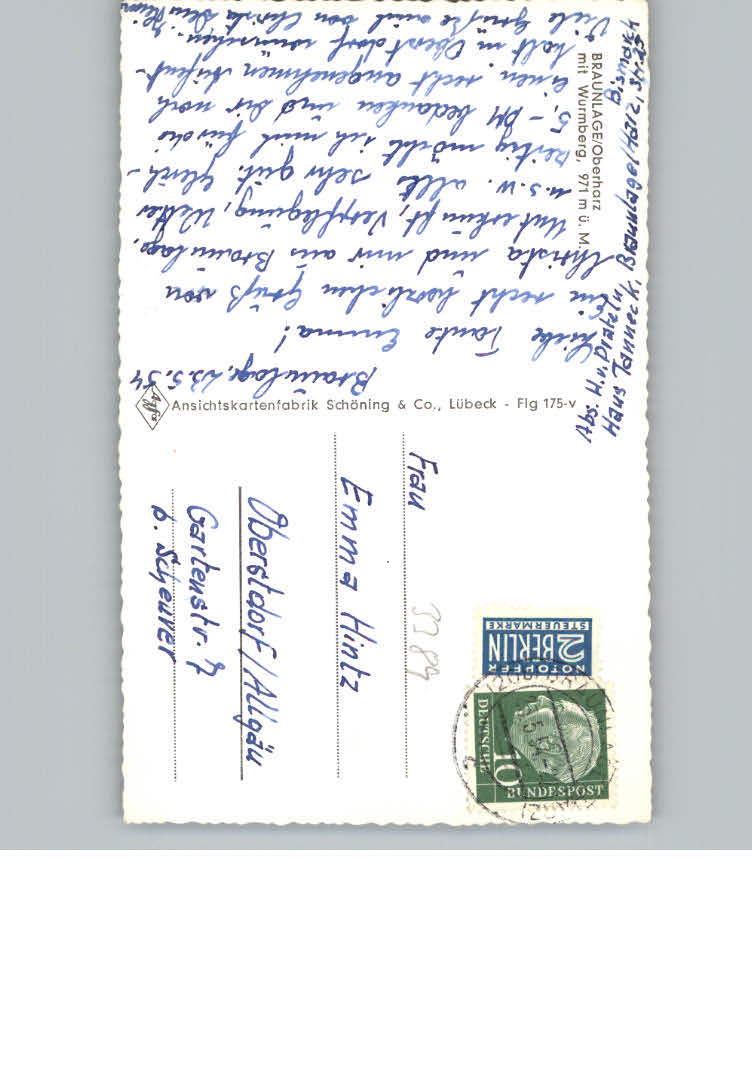 BRAUNLAGE/Oberharz
mit Wurmberg, 971 m ü. M.
Abs. H. v. Drateln
Haus Tanneck, Braunlage/Harz,
Braunlage, 23.5.54
Liebe Tante Emma!
Ein recht herzlichen Gruß von
Christa und mir aus Braunlage.
Unterkunft, Verpflegung, Wetter
u.s.w. alles sehr gut. Gleich-
zeitig möcht ich mich für die
5,- DM bedanken und dir noch
einen recht angenehmen Aufent-
halt in Oberstdorf wünschen.
Viele Grüße auch von Christa Dein
Ansichtskartenfabrik Schöning & Co., Lübeck - Flg 175-v
Agfa
NOTOPFER
2 BERLIN
STEUERMARKE
DEUTSCHE
10
BUNDESPOST
3389
Frau
Emma Hintz
Oberstdorf/Allgäu
Gartenstr. 7
b. Scheurer